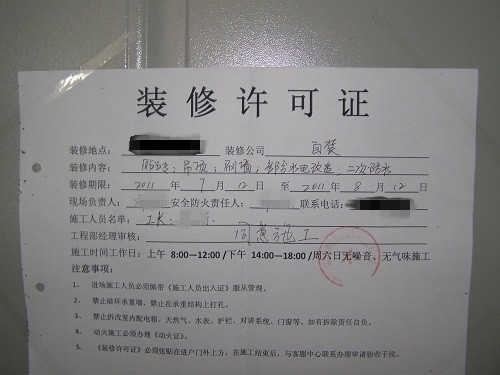 装修许可证
装修地点: 装修公司 自装
装修内容: 防盗; 吊顶; 刷墙; 部分水电改造; 二次防水
装修期限: 2011 年 7 月 12 日 至 2011 年 8 月 12 日
现场负责人: 安全防火责任人: 联系电话:
施工人员名单: 工长:
工程部经理审核: 同意施工
施工时间工作日: 上午 8:00—12:00 /下午 14:00—18:00 /周六日无噪音、无气味施工
注意事项:
1. 进场施工人员必须佩带《施工人员出入证》服从管理。
2. 禁止破坏承重墙, 禁止在承重结构上打孔。
3. 禁止拆改室内配电箱、天然气、水表、护栏、对讲系统、门窗等, 如有拆除责任自负。
4. 动火施工必须办理《动火证》。
5. 《装修许可证》必须张贴在进户门外上方, 在施工结束后, 与客服中心联系办理审请验收手续。